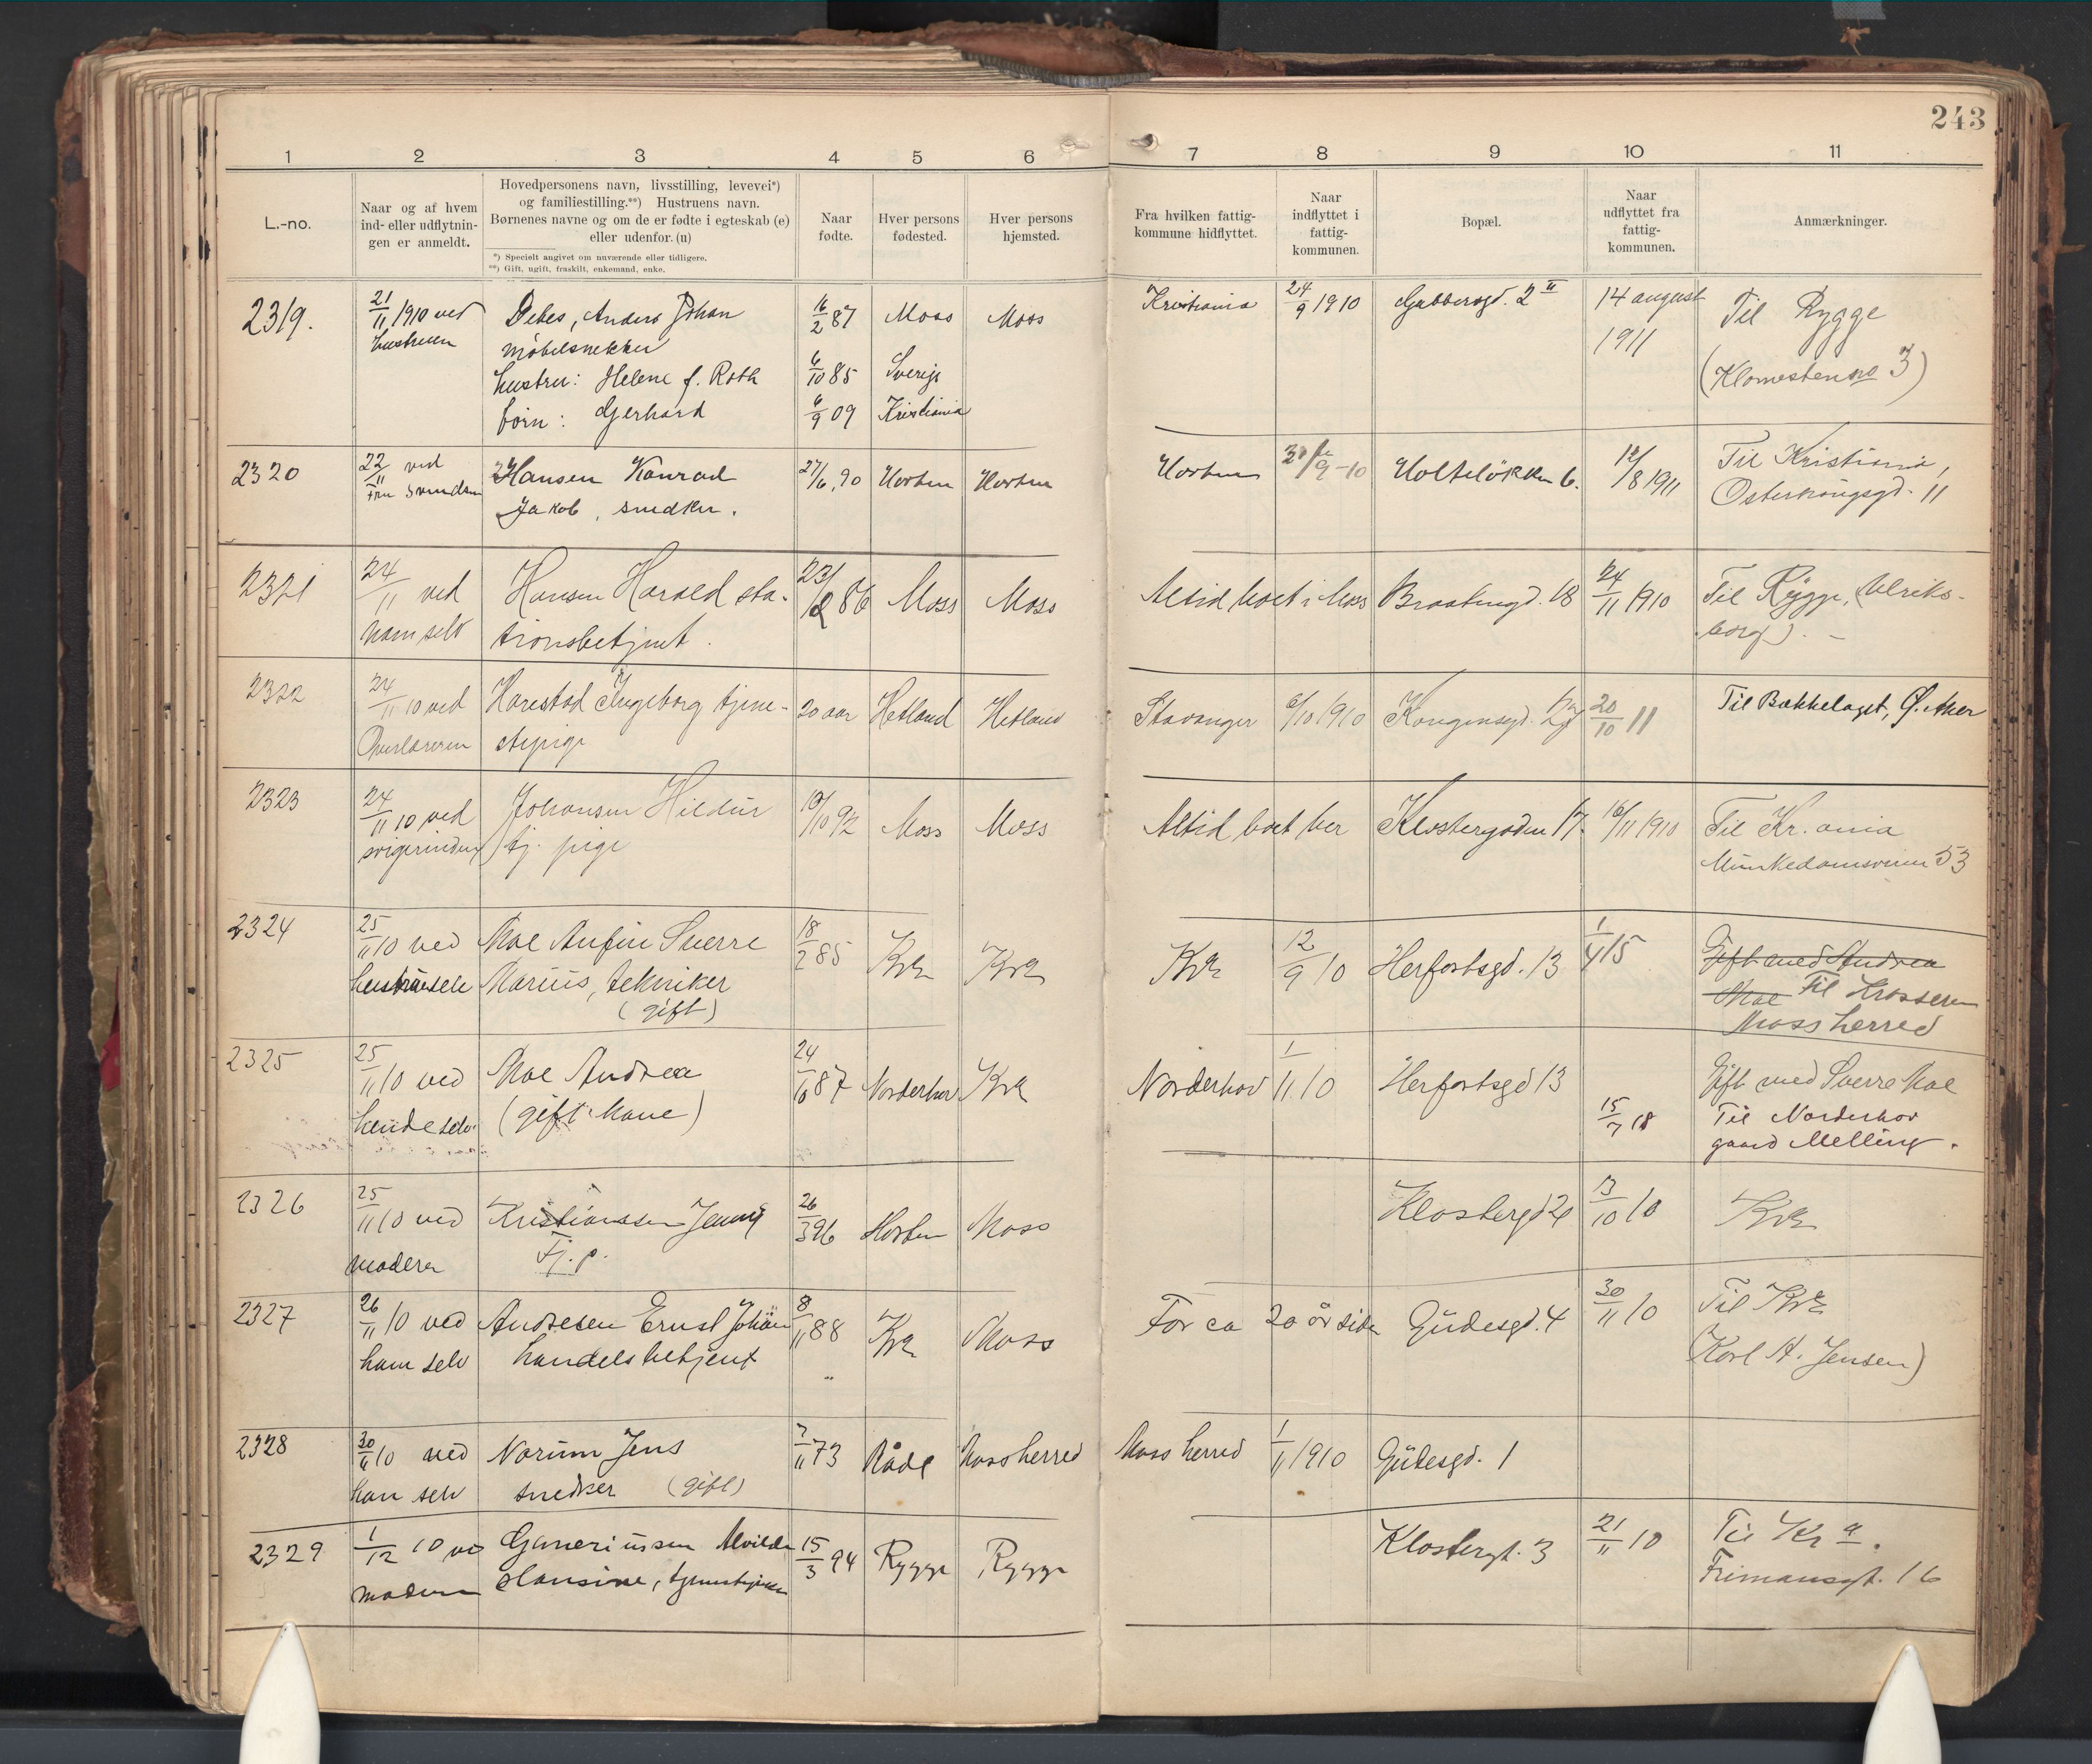 243
1 2 3 4 5 6 7 8 9 10 11
L.-no.
Naar og af hvem
ind- eller udflytnin-
gen er anmeldt.
Hovedpersonens navn, livsstilling, levevei*)
og familiestilling.**) Hustruens navn.
Børnenes navne og om de er fødte i egteskab (e)
eller udenfor. (u)
*) Specielt angivet om nuværende eller tidligere.
**) Gift, ugift, fraskilt, enkemand, enke.
Naar
fødte.
Hver persons
fødested.
Hver persons
hjemsted.
Fra hvilken fattig-
kommune hidflyttet.
Naar
indflyttet i
fattig-
kommunen.
Bopæl.
Naar
udflyttet fra
fattig-
kommunen.
Anmærkninger.
2319. 21/11 1910 ved Debes, Anders Johan 16/2 87 Moss Moss Kristiania 24/9 1910 2 II 14 august Til Rygge
hustruen møbelsnekker 1911
hustru: Helene f. Roth 6/10 85 Sverige (Klommesten no 3)
børn: Gerhard 6/9 09 Kristiania
2320 22/11 ved Hansen Konrad 27/6 90 Horten Horten Horten /9-10 Holteløkken 6. 12/8 1911 Til Kristiania,
Fru Svendsen Jakob, snedker. Østerkongsgd. 11
2321 24/11 ved Hansen Harald sta- 23/12 86 Moss Moss Altid boet i Moss Braatengd. 18 24/11 1910 Til Rygge, (Ulriks-
ham selv tionsbetjent. borg). -
2322 24/11 10 ved Harestad Ingeborg tjene- 20 aar Hetland Hetland Stavanger 6/10 1910 Kongensgd. 20/10 11 Til Bækkelaget, Ø. Aker
Overlæreren stepige
2323 24/11 10 ved Johansen Hildur 19/10 92 Moss Moss Altid boet her Klostergaden 17. 16/11 1910 Til Kr.ania
svigerinden tj. pige Munkedamsveien 53
2324 25/11 10 ved Moe Anfin Sverre 18/2 85 Kra Kra Kra 12/9 10 Herfortsgd. 13 1/4 15 Gift med Andrea
Marius, tekniker Moe Til Krosseren
(gift) Moss herred
2325 25/11 10 ved Moe Andrea 24/10 87 Norderhov Kra Norderhov 1/11 10 Herfortsgd 13 Gift med Sverre Moe
hende selv. (gift kone) 15/7 18 Til Norderhov
gaard Melling.
2326 25/11 10 ved Kristiansen Jenny 26/3 96 Horten Moss Klostergd 20 13/10 10 Kra
moderen Tj. p.
2327 26/11 10 ved Andresen Ernst Johan 8/11 88 Kra Moss For ca 20 år siden Gudesgd. 4 30/11 10 Til Kra
ham selv handelsbetjent (Karl A. Jensen)
2328 30/11 10 ved Norum Jens 7/11 73 Råde Moss herred Moss herred 1/11 1910 Gudesgd. 1
han selv snedker (gift)
2329 1/12 10 ved Ganeriussen Alvilde 15/3 94 Rygge Rygge Klostergt. 3 21/11 10 Til Kra.
moderen Hansine, tjenestepike Frimansgt. 16